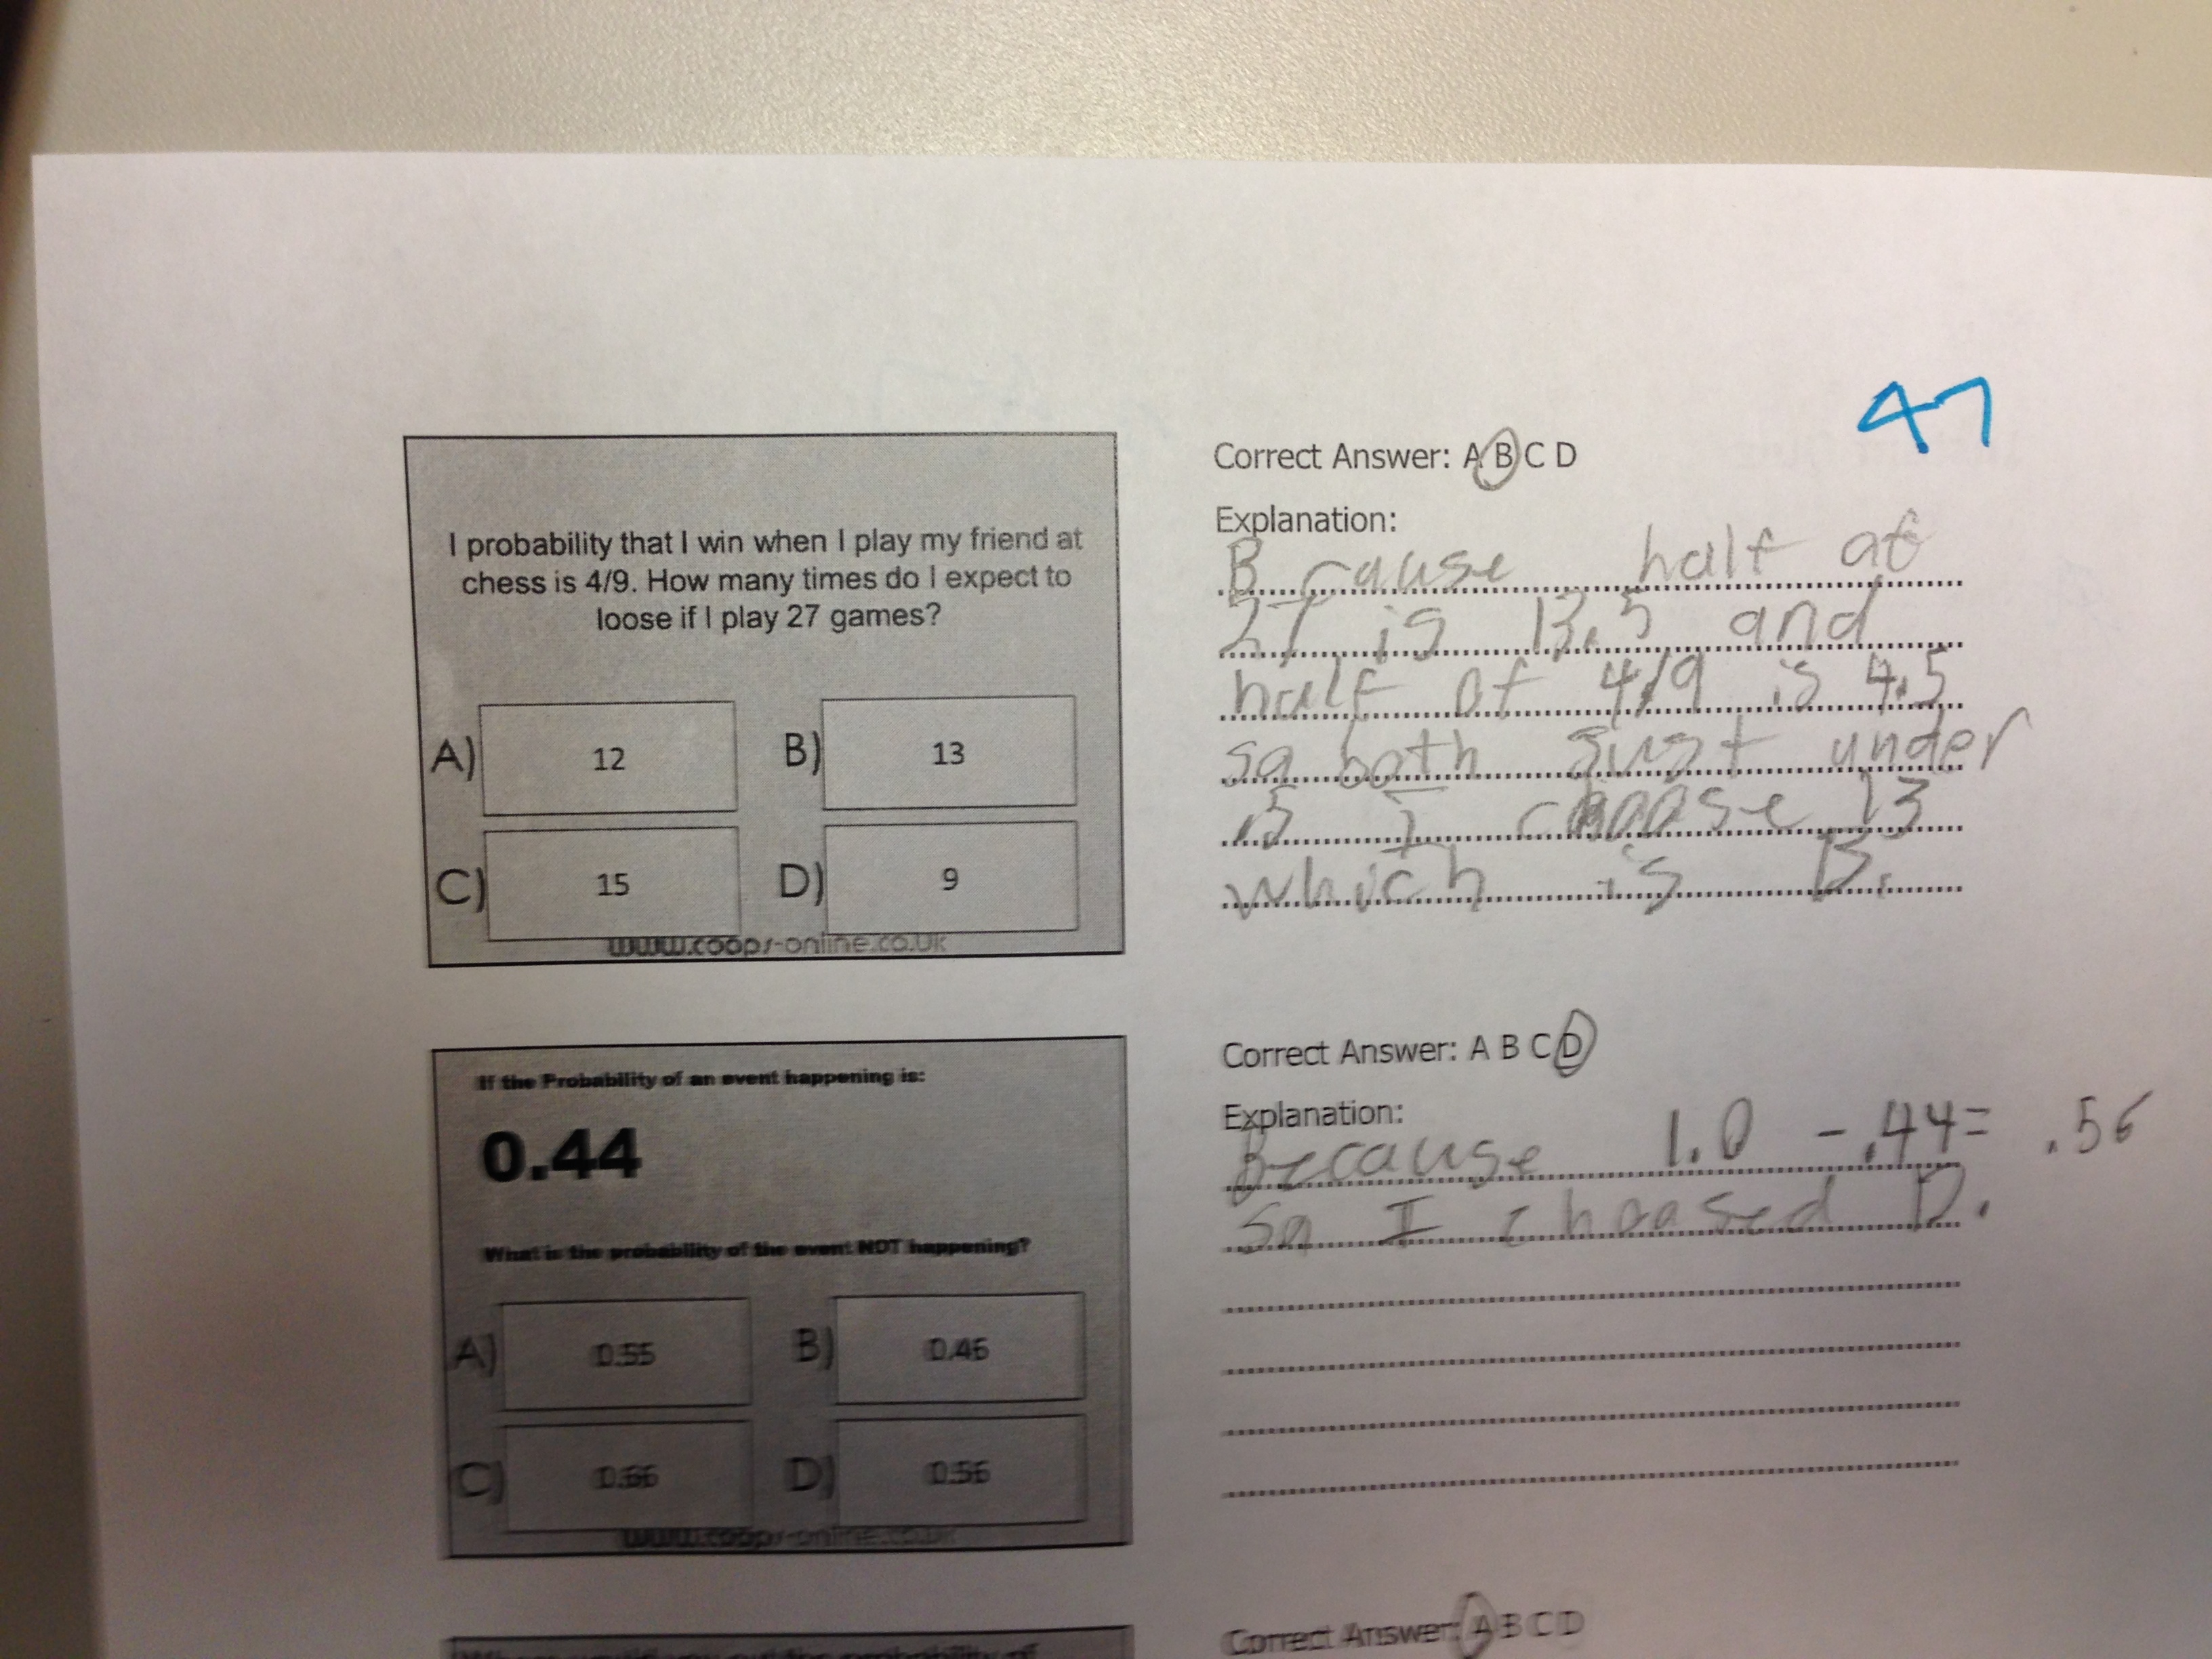 47
I probability that I win when I play my friend at
chess is 4/9. How many times do I expect to
loose if I play 27 games?
A) 12
B) 13
C) 15
D) 9
www.coops-online.co.uk
Correct Answer: A B C D
Explanation:
Because half of
27 is 13.5 and
half of 4/9 is 4.5
so both just under
.5 I choose 13
which is B.
If the Probability of an event happening is:
0.44
What is the probability of the event NOT happening?
A) 0.55
B) 0.46
C) 0.66
D) 0.56
www.coops-online.co.uk
Correct Answer: A B C D
Explanation:
Because 1.0 - .44 = .56
so I choosed D.
Correct Answer: A B C D